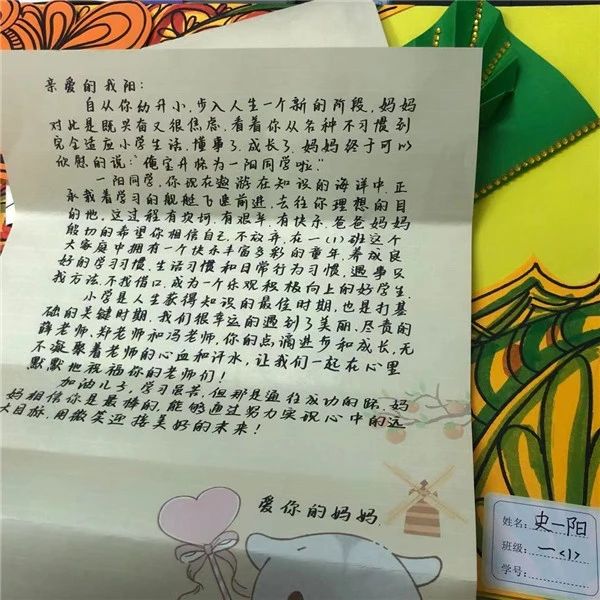 亲爱的我阳：
自从你幼升小，步入人生一个新的阶段，妈妈
对此是既兴奋又很焦虑，看着你从各种不习惯到
完全适应小学生活，懂事了，成长了，妈妈终于可以
欣慰的说：“俺宝升帙为一阳同学啦。”
一阳同学，你现在遨游在知识的海洋中，正
承载着学习的舰艇飞速前进，去往你理想的目
的地。这过程有坎坷，有艰辛，有快乐，爸爸妈妈
殷切的希望你相信自己，不放弃，在一（1）班这个
大家庭中拥有一个快乐丰富多彩的童年，养成良
好的学习习惯、生活习惯和日常行为习惯，遇事只
找方法，不找借口，成为一个乐观积极向上的好学生。
小学是人生获得知识的最佳时期，也是打基
础的关键时期，我们很幸运的遇到了美丽、尽责的
薛老师、郑老师和冯老师，你的点滴进步和成长，无
不凝聚着老师的心血和汗水，让我们一起在心里
默默地祝福你的老师们！
加油儿子，学习虽苦，但那是通往成功的路，妈
妈相信你是最棒的，能够通过努力实现心中的远
大目标，用微笑迎接美好的未来！
爱你的妈妈
姓名：史一阳
班级：一<1>
学号：